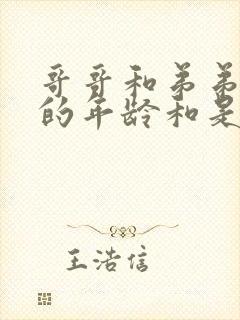 哥哥和弟弟
的年龄和是
王浩信